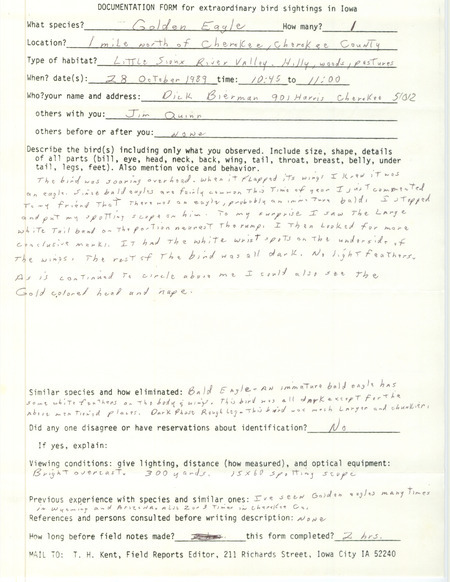 DOCUMENTATION FORM for extraordinary bird sightings in Iowa
What species? Golden Eagle How many? 1
Location? 1 mile north of Cherokee, Cherokee County
Type of habitat? Little Sioux River Valley. Hilly, woods, pastures
When? date(s): 28 October 1989 time: 10:45 to 11:00
Who? your name and address: Dick Bierman 901 Harris Cherokee 51012
others with you: Jim Quinn
others before or after you: none
Describe the bird(s) including only what you observed. Include size, shape, details
of all parts (bill, eye, head, neck, back, wing, tail, throat, breast, belly, under
tail, legs, feet). Also mention voice and behavior.
The bird was soaring overhead. When it flapped its wings I knew it was
an eagle. Since bald eagles are fairly common this time of year I just commented
to my friend that there was an eagle, probably an immature bald. I stopped
and put my spotting scope on him. To my surprise I saw the large
white tail band on the portion nearest the rump. I then looked for more
conclusive marks. It had the white wrist spots on the underside of
the wings. The rest of the bird was all dark. No light feathers.
As is continued to circle above me I could also see the
Gold colored head and nape.
Similar species and how eliminated: Bald Eagle - An immature bald eagle has
some white feathers on the body & wings. This bird was all dark except for the
above mentioned places. Dark Phase Rough leg - This bird was much larger and
Did any one disagree or have reservations about identification? No
If yes, explain:
Viewing conditions: give lighting, distance (how measured), and optical equipment:
Bright overcast. 300 yards. 15x60 spotting scope
Previous experience with species and similar ones: I've seen Golden eagles many times
in Wyoming and Arizona. Also 2 or 3 times in Cherokee Co.
References and persons consulted before writing description: none
How long before field notes made? this form completed? 2 hrs.
MAIL TO: T. H. Kent, Field Reports Editor, 211 Richards Street, Iowa City IA 52240